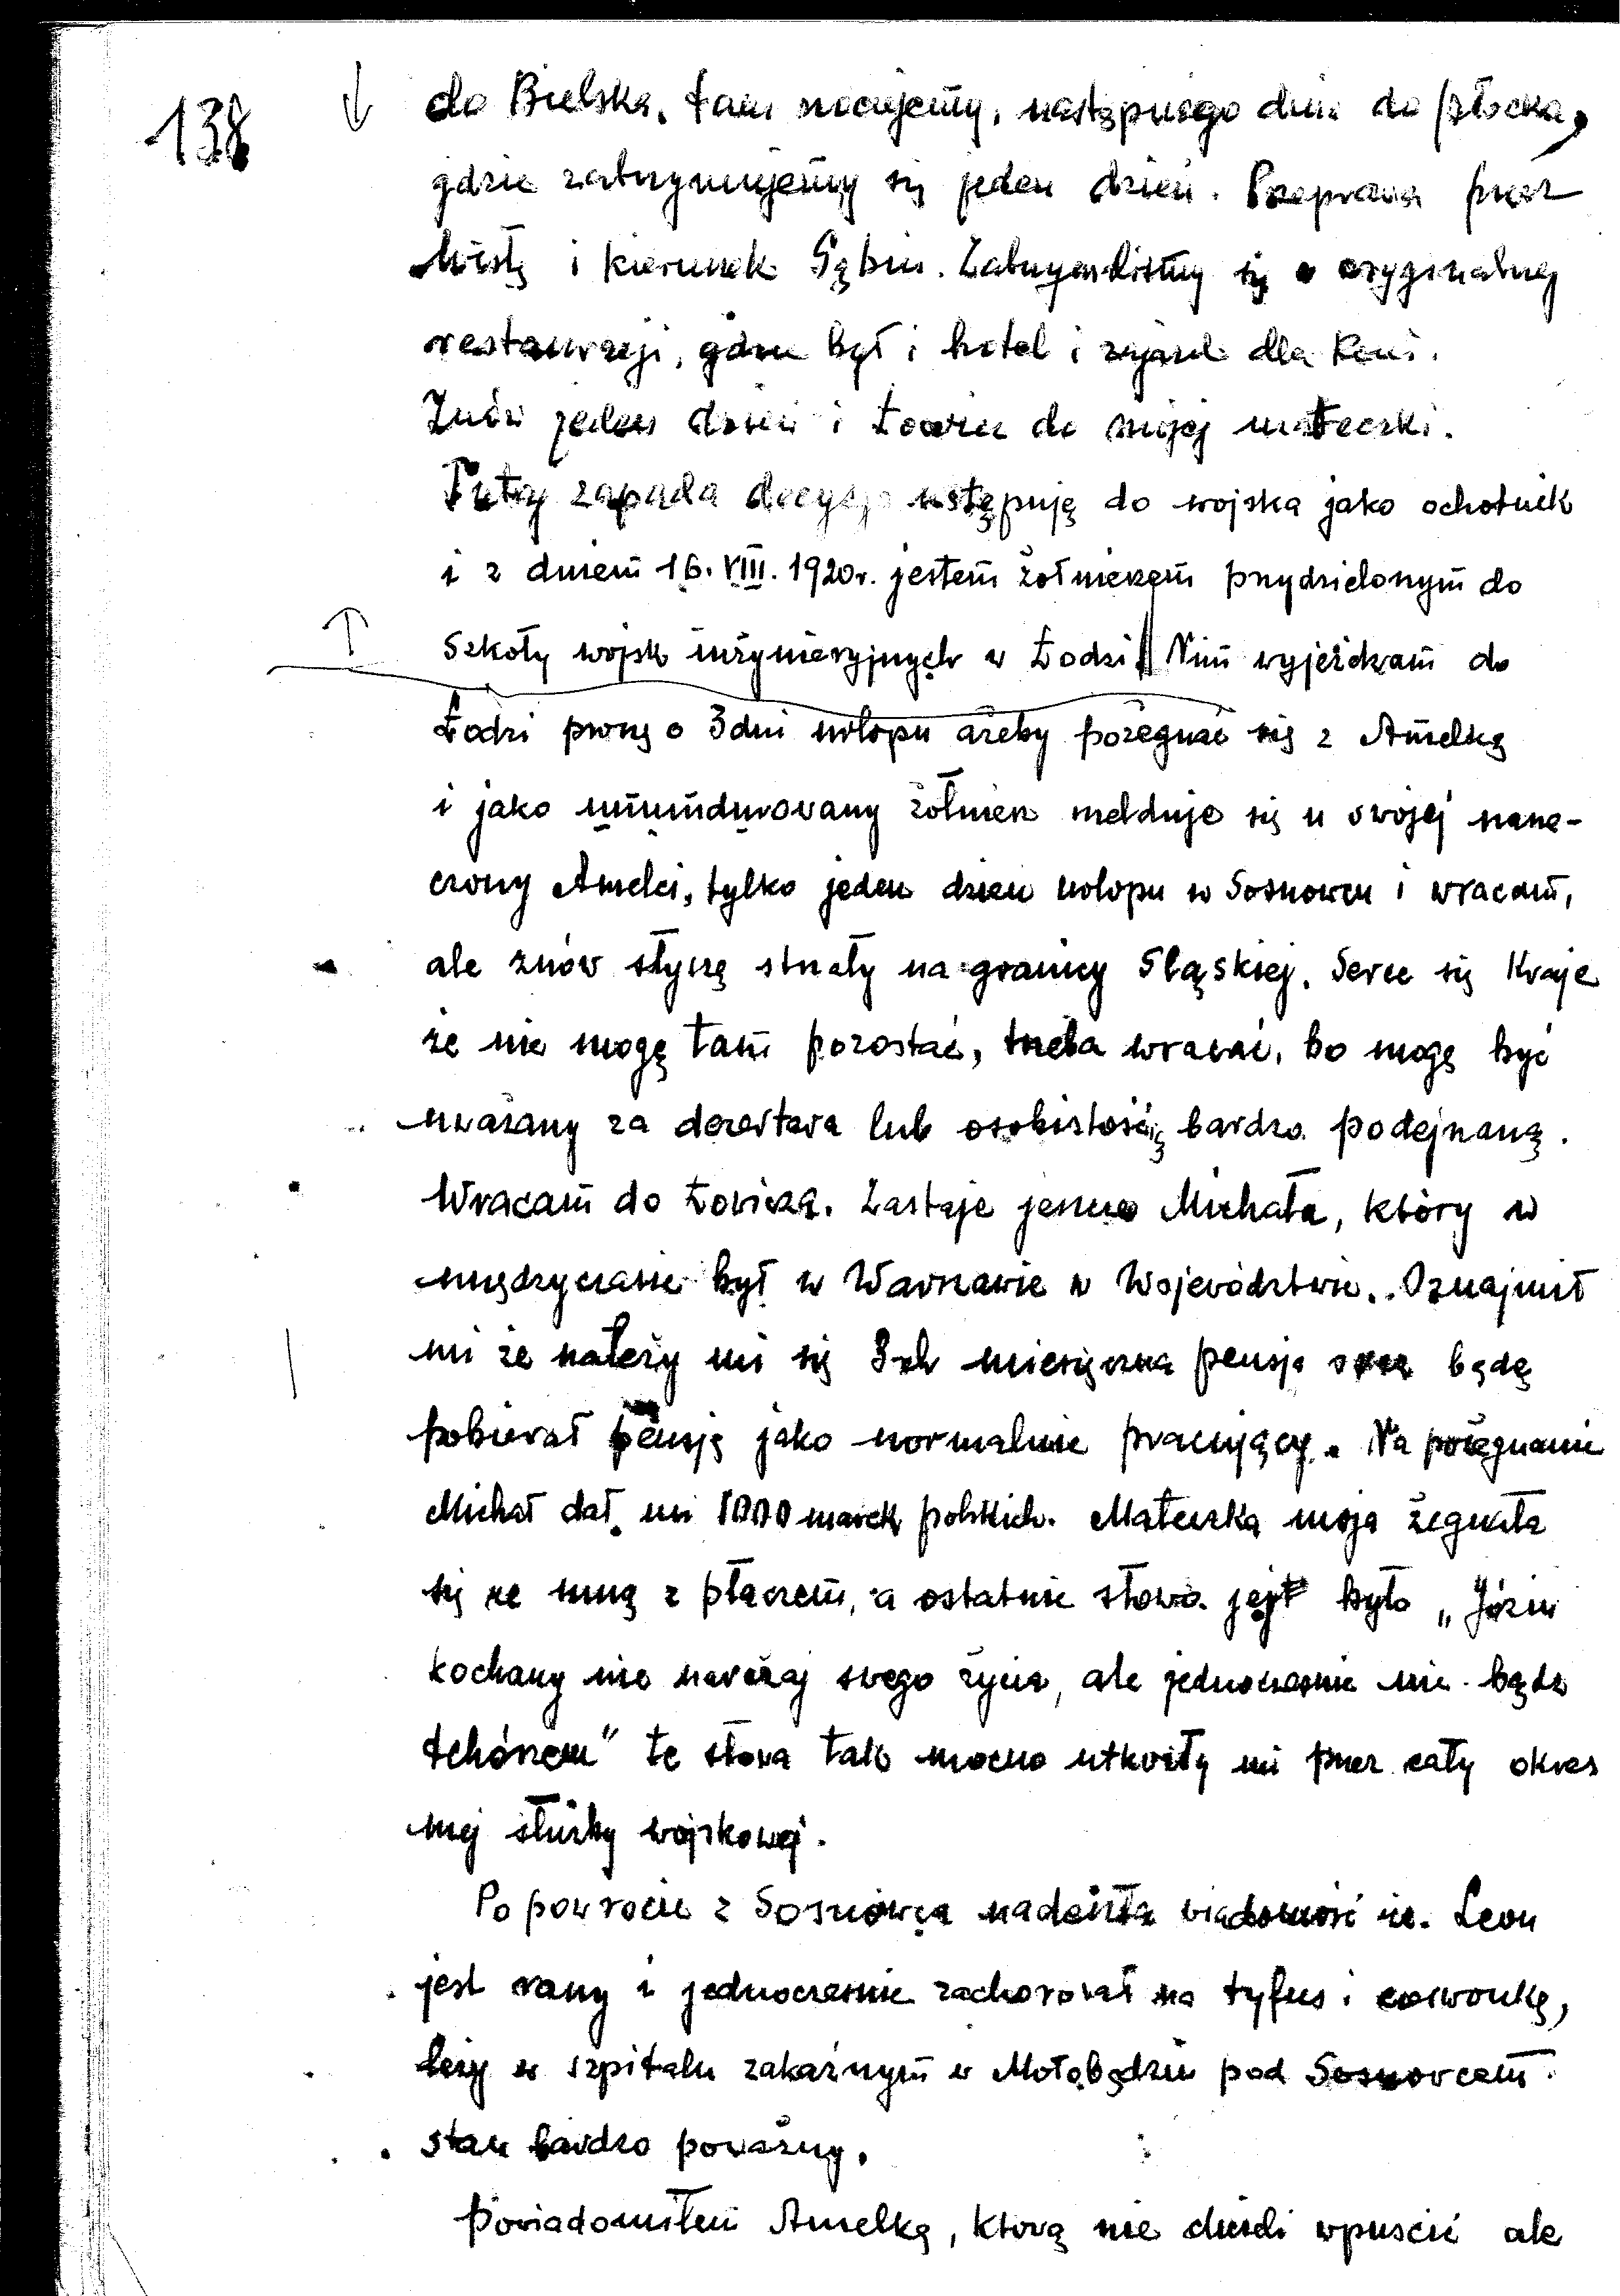 138
do Bielska, tam nocujemy, następnego dnia do Płocka,
gdzie zatrzymujemy się jeden dzień. Przeprawa przez
Wisłę i kierunek Gąbin. Zatrzymaliśmy się w oryginalnej
restauracji, gdzie był i hotel i zajazd dla koni.
Znów jeden dzień i Łowicz do mojej mateczki.
Tutaj zapada decyzja wstępuję do wojska jako ochotnik
i z dniem 16. VIII. 1920 r. jestem żołnierzem przydzielonym do
Szkoły wojsk inżynieryjnych w Łodzi. Nim wyjeżdżam do
Łodzi proszę o 3 dni urlopu ażeby pożegnać się z Amelką
i jako umundurowany żołnierz melduje się u swojej narze-
czony Amelci, tylko jeden dzień urlopu w Sosnowcu i wracam,
ale znów słyszę strzały na granicy Śląskiej. Serce się kraje
że nie mogę tam pozostać, trzeba wracać, bo mogę być
uważany za dezertera lub osobistością bardzo podejrzaną.
Wracam do Łowicza. Zastaje jeszcze Michała, który w
międzyczasie był w Warszawie w Województwie. Oznajmił
mi że należy mi się 3-ch miesięczna pensja oraz będę
pobierał pensję jako normalnie pracujący. Na pożegnanie
Michał dał mi 1000 marek polskich. Mateczka moja żegnała
się ze mną z płaczem, a ostatnie słowa jej było „Józiu
kochany nie narażaj swego życia, ale jednocześnie nie bądź
tchórzem" te słowa tak mocno utkwiły mi przez cały okres
mej służby wojskowej.
Po powrocie z Sosnowca nadeszła wiadomość że Leon
jest rany i jednocześnie zachorował na tyfus i czerwonkę,
leży w szpitalu zakaźnym w Małobądziu pod Sosnowcem
stan bardzo poważny.
Powiadomiłem Amelkę, którą nie chcieli wpuścić ale